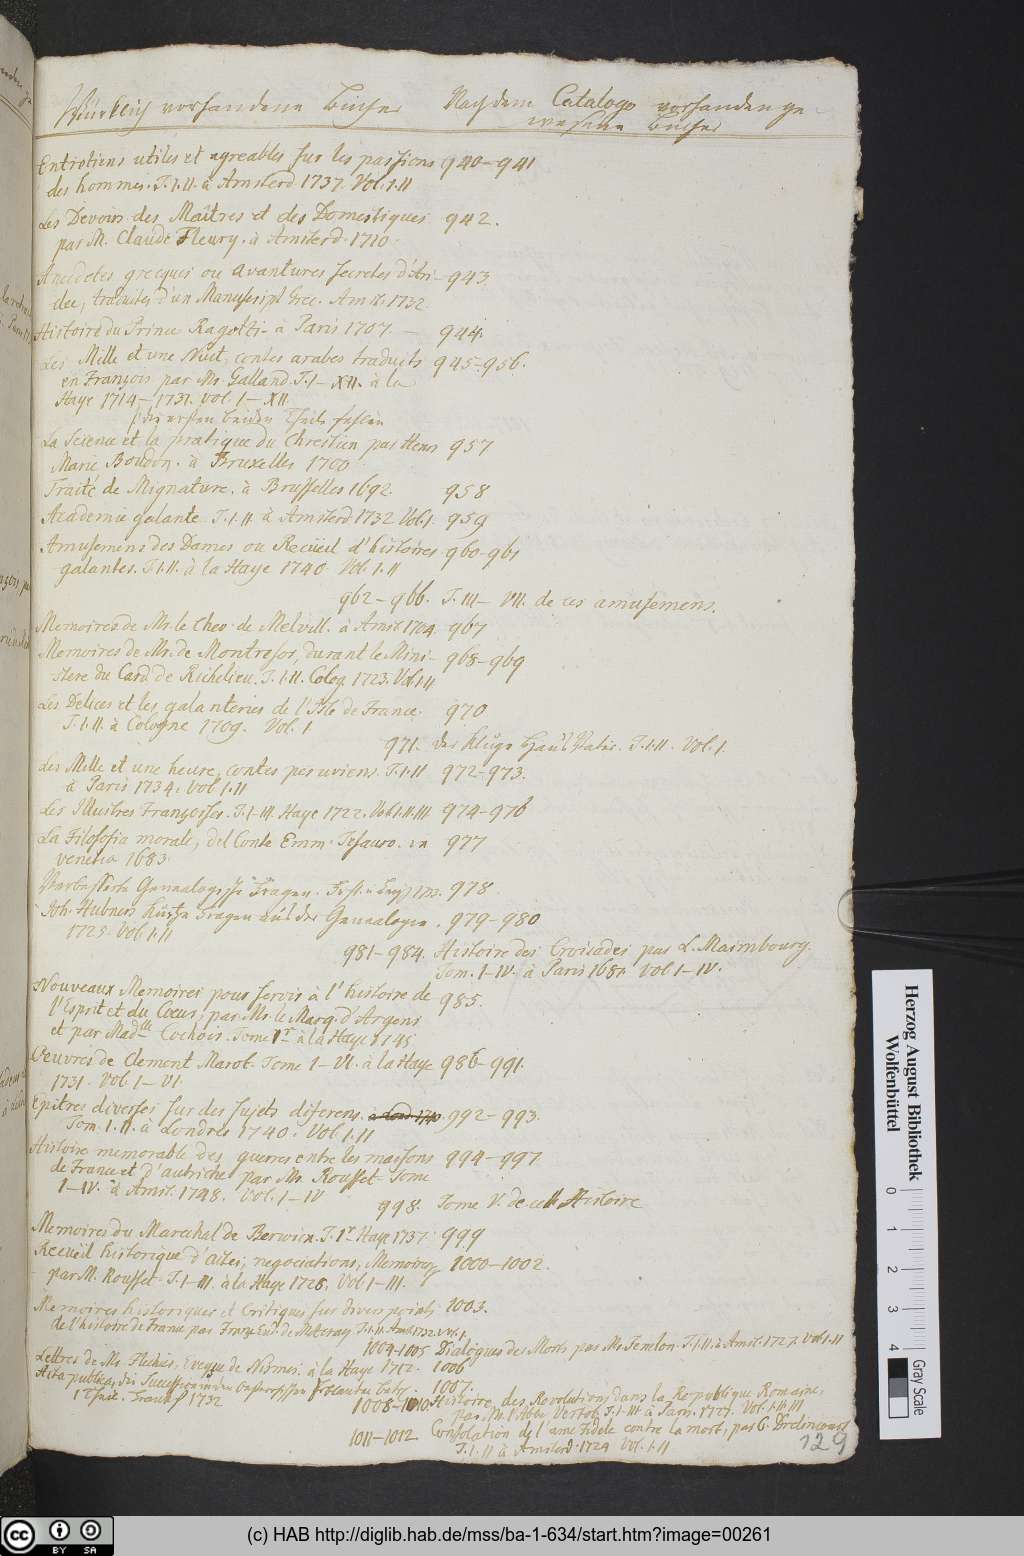 Würklich vorhandene Bücher Nach dem Catalogo vorhanden ge-
wesene Bücher
Entretiens utiles et agreables sur les passions 940–941
des hommes. T. I. II. à Amsterd. 1737. Vol. I. II
Les Devoirs des Maîtres et des Domestiques 942.
par M. Claude Fleury. à Amsterd. 1710.
Anecdotes grecques ou avantures secretes d'Ari- 943.
dee, traduites d'un Manuscript Grec. Amst. 1732.
Histoire du Prince Ragotzi. à Paris 1707. — 944.
Les Mille et une Nuit, contes arabes traduits 945–956.
en François par Mr. Galland. T. I–XII. à la
Haye 1714–1731. Vol. I–XII
die ersten beiden Theile fehlen
La Science et la pratique du Chrestien par Henri 957
Marie Boudon. à Bruxelles 1700
Traité de Mignature. à Brusselles 1692. 958
Academie galante. T. I. II. à Amsterd 1732 Vol. I. 959
Amusemens des Dames ou Recüeil d'histoires 960–961
galantes. T. I. II. à la Haye 1740. Vol. I. II
962–966. T. III–VII. de ces amusemens.
Memoires de Mr. le Chev. de Melvill. à Amst. 1704. 967
Memoires de Mr. de Montresor, durant le Mini- 968–969
stere du Card. de Richelieu. T. I. II. Colog. 1723. Vol. I. II
Les Delices et les galanteries de l'Isle de France. 970
T. I. II. à Cologne 1709. Vol. I
971. der kluge Haus Vater. T. I. II. Vol. I.
Les Mille et une heure, contes peruviens. T. I. II 972–973.
à Paris 1734. Vol. I. II
Les Illustres Françoises. T. I–III. Haye 1722. Vol. I. II. III 974–976
La Filosofia morale, del Conte Emm. Tesauro. in 977
Venetia 1683.
Verbesserte Genealogische Fragen. 978.
Joh. Hübners kurtze Fragen aus der Genealogie. 979–980
1725. Vol. I. II
981–984. Histoire des Croisades par L. Maimbourg.
Tom. I–IV. à Paris 1687. Vol I–IV.
Nouveaux Memoires pour servir à l'histoire de 985.
l'Esprit et du Cœur, par Mr. le Marq. d'Argens
et par Madlle Cochois. Tome 1r. à la Haye 1745.
Oeuvres de Clement Marot. Tome I–VI. à la Haye 986–991.
1731. Vol. I–VI.
Epitres diverses sur des sujets diferens. à Lond. 1740 992–993.
Tom. I. II. à Londres 1740. Vol. I. II
Histoire memorable des guerres entre les maisons 994–997.
de France et d'autriche par Mr. Rousset. Tome
I–IV. à Amst. 1748. Vol. I–IV
998. Tome V. de cette Histoire
Memoires du Marechal de Berwick. T. 1r Haye 1737. 999
Recueil historique d'actes, negociations, Memoires 1000–1002.
par M. Rousset. T. I–III. à la Haye 1728. Vol. I–III.
Memoires historiques et Critiques sur divers points 1003.
de l'histoire de France par Franç. Eud. de Mezeray T. I. II. Amst. 1732. Vol. I.
1004–1005 Dialogues des Morts par Mr. Fenelon. T. I. II. à Amst. 1727. Vol. I. II
Lettres de Mr. Flechier, Eveque de Nismes. à la Haye 1712. 1006
Acta publica, 1007.
1 Theil. 1732
1008–1010 Histoire des Revolutions, dans la Republique Romaine,
par Mr. l'Abbé Vertot. T. I–III à Paris. 1727. Vol. I. II. III
1011–1012 Consolation de l'ame Fidele contre la mort, par C. Drelincourt
T. I. II à Amsterd. 1724 Vol. I. II
129
Herzog August Bibliothek
Wolfenbüttel
0 1 2 3 4
Gray Scale
cc BY SA
(c) HAB http://diglib.hab.de/mss/ba-1-634/start.htm?image=00261